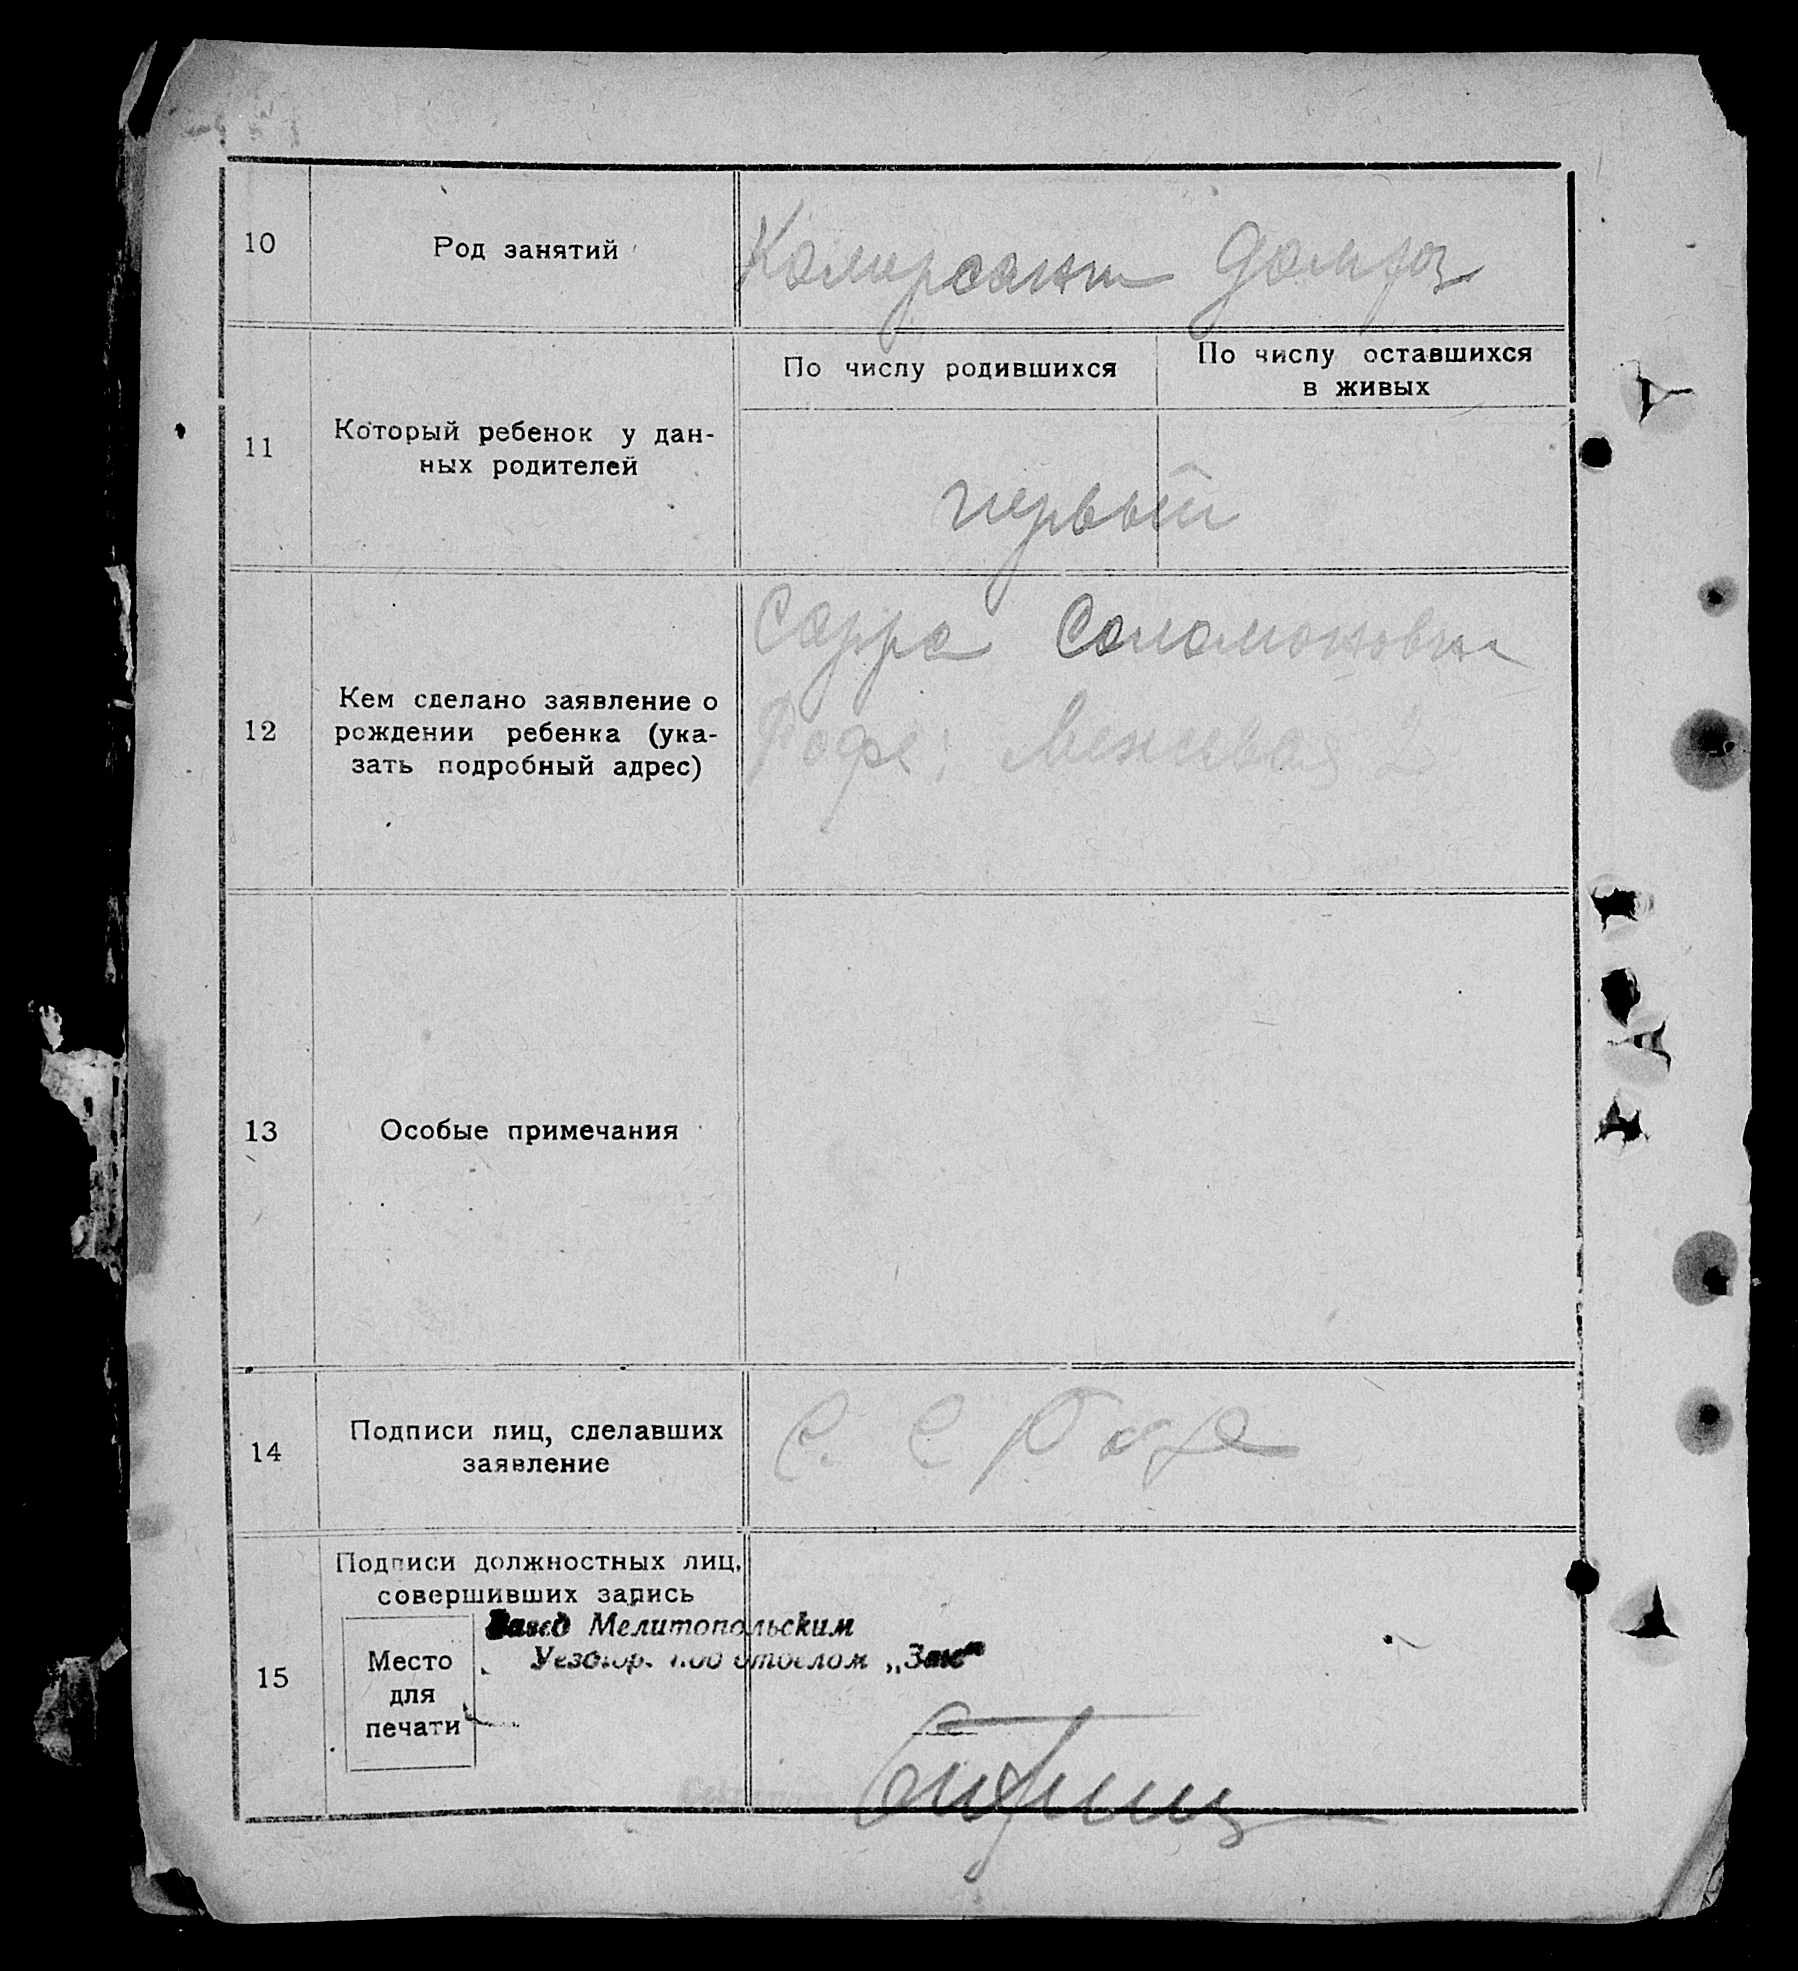 10
Род занятий
Комерсант Домхоз
11
Который ребенок у дан-
ных родителей
По числу родившихся
По числу оставшихся
в живых
первый
12
Кем сделано заявление о
рождении ребенка (ука-
зать подробный адрес)
Сарра Соломоновна
Рофе; 2
13
Особые примечания
14
Подписи лиц, сделавших
заявление
С. С Рофе
15
Подписи должностных лиц,
совершивших запись
Место
для
печати
Завед Мелитопольским
отделом „Загс"